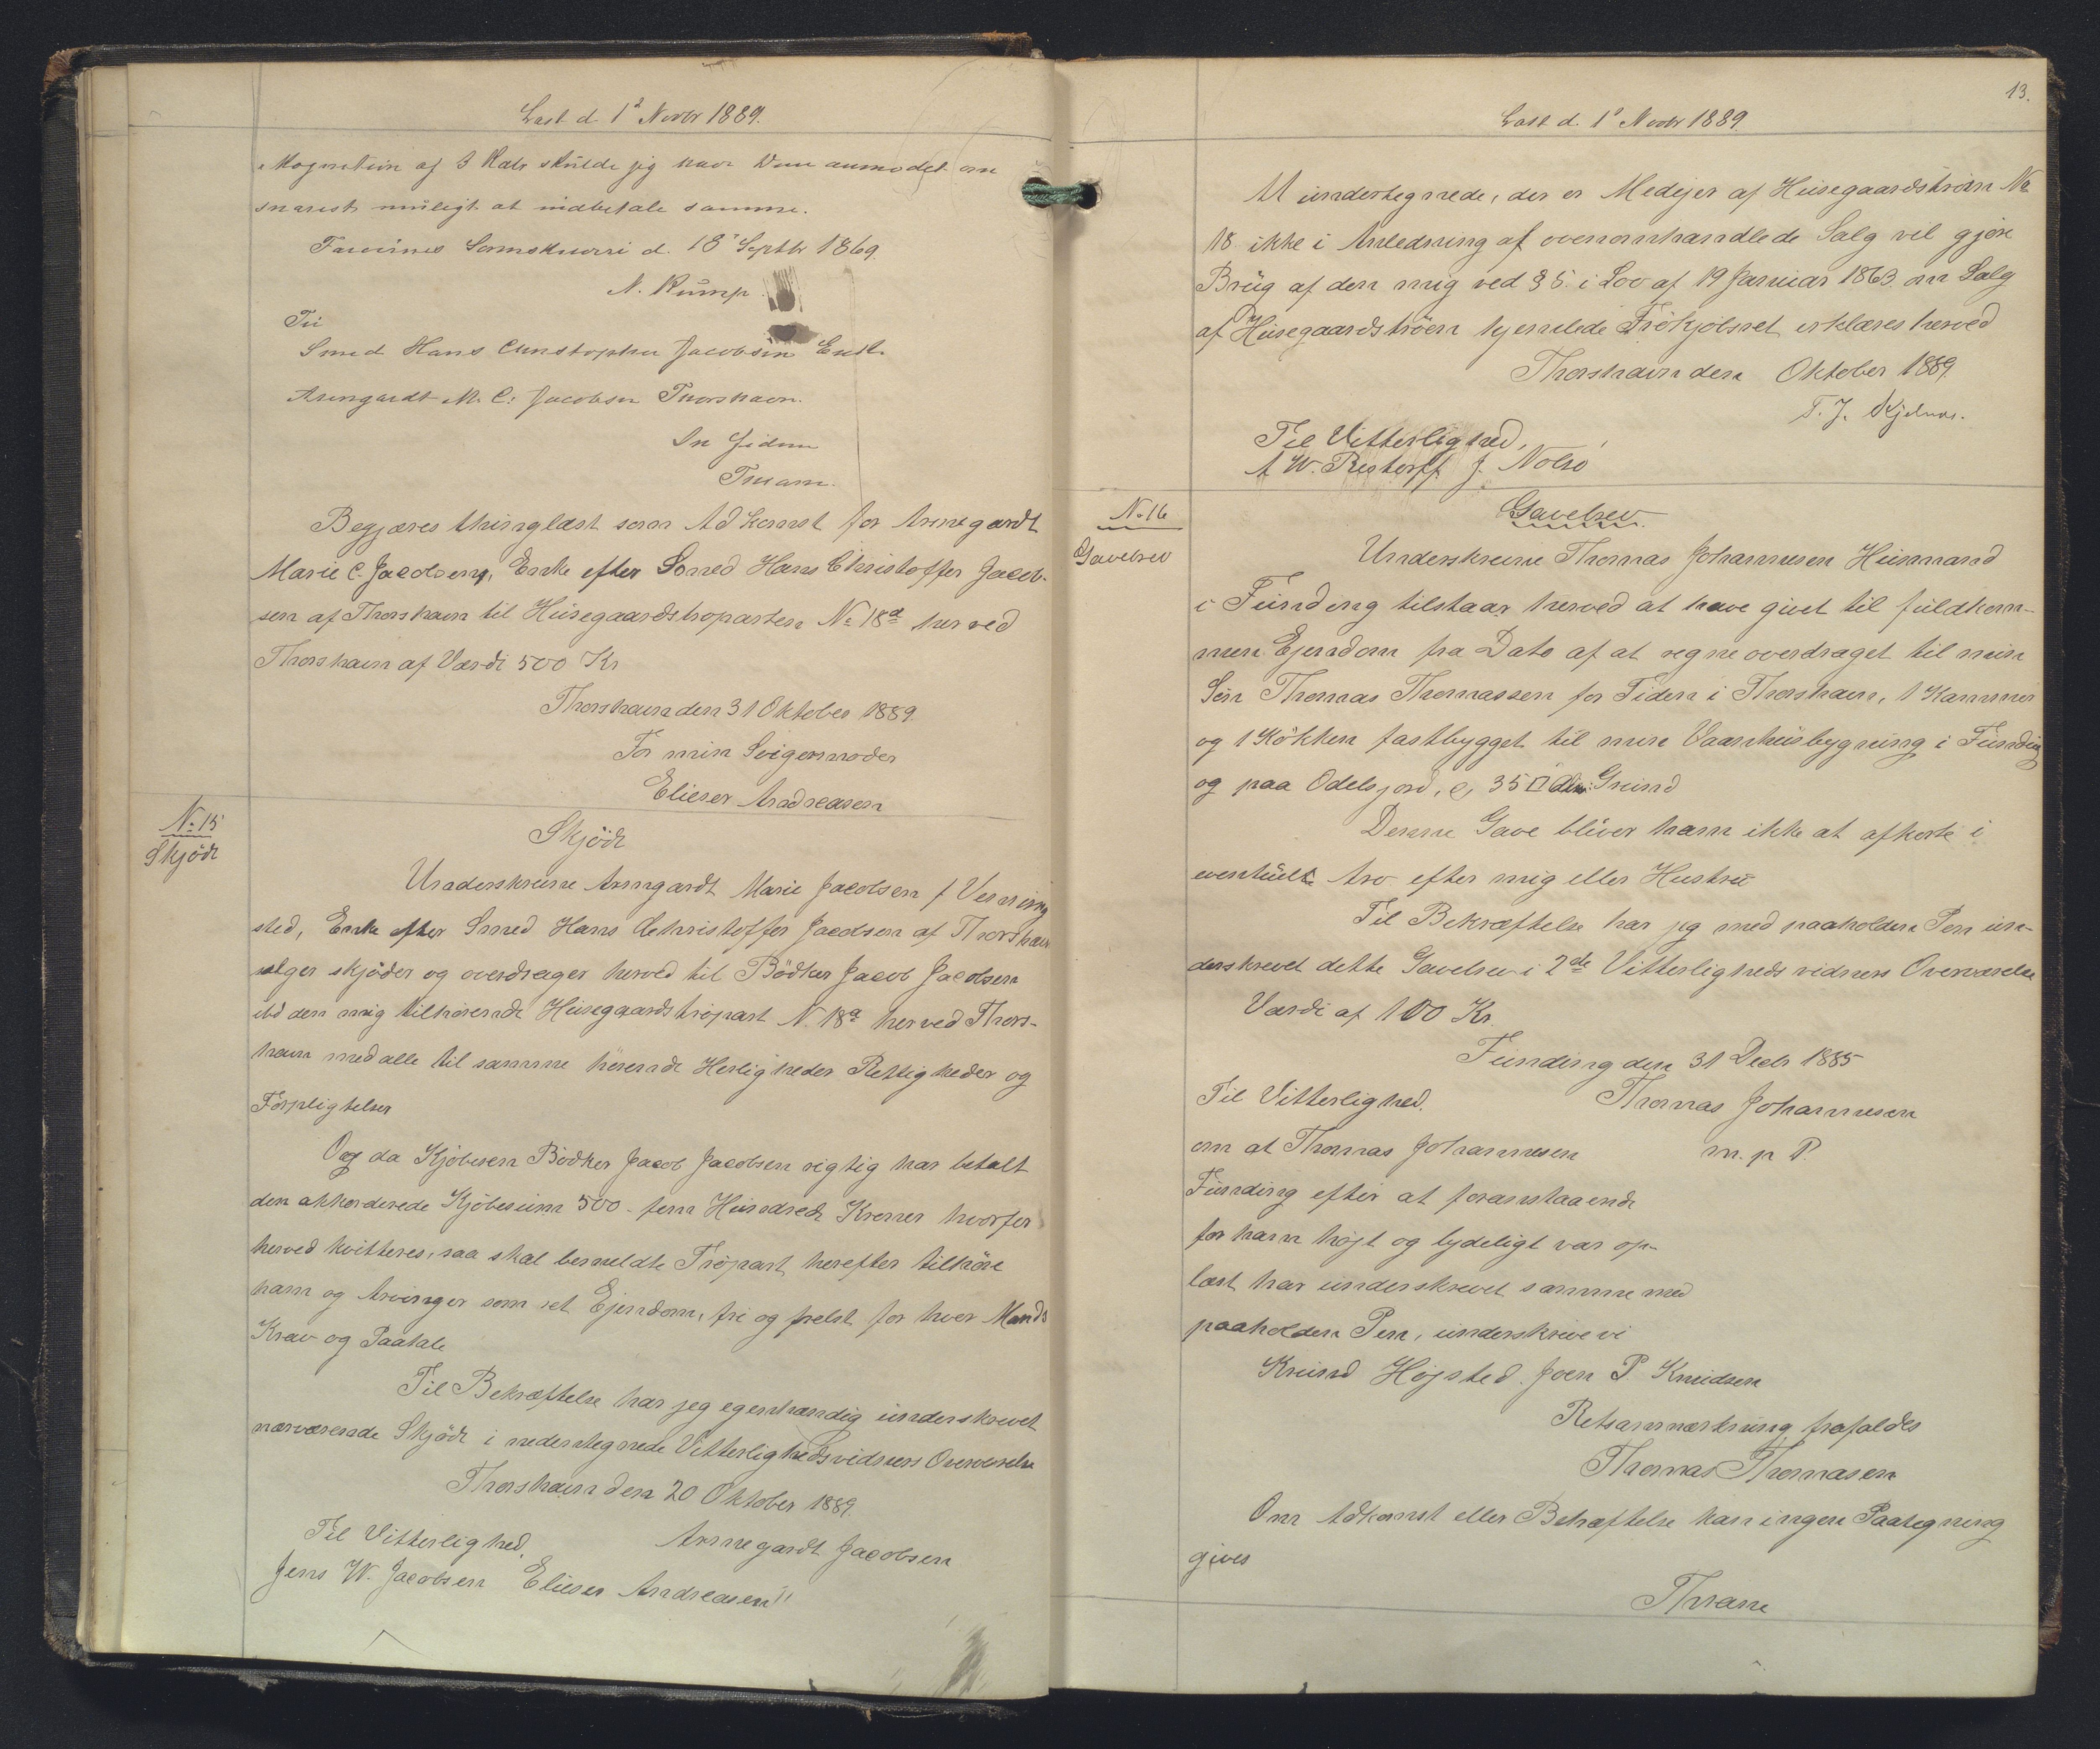 Læst d. 1ª Novbr 1889.
Mognation af 3 Rdlr skulde jeg have Dem anmodet om
snarest muligt at indbetale samme.
Færøernes Sorenskriveri d. 18' Septbr 1869.
N. Rump.
Til
Smed Hans Christopher Jacobsen Enke
Armgardt M. C. Jacobsen Thorshavn.
In fidem
Thrane.
Begjæres thinglæst som Adkomst for Armegardt
Marie C. Jacobsen, Enke efter Smed Hans Christoffer Jacob-
sen af Thorshavn til Husegaardstroparten No 18a her ved
Thorshavn af Værdi 500 Kr
Thorshavn den 31 Oktober 1889.
For min Svigermoder
Elieser Andreasen
No 15
Skjöde
Skjöde
Underskrevne Armgardt Marie Jacobsen f Venning
sted, Enke efter Smed Hans Christoffer Jacobsen af Thorshavn
sælger skjöder og overdrager herved til Bödker Jacob Jacobsen
ibd den mig tilhörende Husegaardströpart N. 18a her ved Thors-
havn med alle til samme hörende Herligheder Rettigheder og
Forpligtelser
Og da Kjöberen Bödker Jacob Jacobsen rigtig har betalt
den akkorderede Kjöbesum 500 - fem Hundrede Kroner hvorfor
herved kvitteres, saa skal bemeldte Tröpart herefter tilhöre
ham og Arvinger som ret Ejendom, fri og frelst for hver Mands
Krav og Paatale
Til Bekræftelse har jeg egenhændig underskrevet
nærværende Skjöde i nedentegnede Vitterlighedsvidners Overværelse
Thorshavn den 20 Oktober 1889.
Til Vitterlighed. Armegardt Jacobsen
Jens W. Jacobsen Elieser Andreasen
13.
Læst d. 1ª Novbr 1889
At undertegnede, der er Medejer af Husegaardströen No
18 ikke i Anledning af ovenomhandlede Salg vil gjöre
Brug af den mig ved § 5 i Lov af 19 Januar 1863 om Salg
af Husegaardströen hjemlede Forkjöbsret erklæres herved
Thorshavn den Oktober 1889.
T. J. Kjelnæs.
Til Vitterlighed,
A W. Restorff J. Nolsö
No 16
Gavebrev
Gavebrev
Underskrevne Thomas Johannesen Husmand
i Funding tilstaar herved at have givet til fuldkom-
men Ejendom fra Dato af at regne overdraget til min
Sön Thomas Thomassen for Tiden i Thorshavn, 1 Kammer
og 1 Kökken fastbygget til min Vaanhusbygning i Funding
og paa Odelsjord, c, 35 □ Alen Grund
Denne Gave bliver ham ikke at afkorte i
eventuelt Arv efter mig eller Hustru
Til Bekræftelse har jeg med paaholden Pen un-
derskrevet dette Gavebrev i 2de Vitterligheds vidners Overværelse
Værdi af 100 Kr.
Funding den 31 Decbr 1885
Til Vitterlighed. Thomas Johannesen
om at Thomas Johannesen m. p P.
Funding efter at foranstaaende
for ham höjt og lydeligt var op-
læst har underskrevet samme med
paaholden Pen, underskrive vi
Knud Höjsted. Joen P. Knudsen
Retsanmærkning frafaldes
Thomas Thomasen
Om Adkomst eller Behæftelse kan ingen Paategning
gives
Thrane